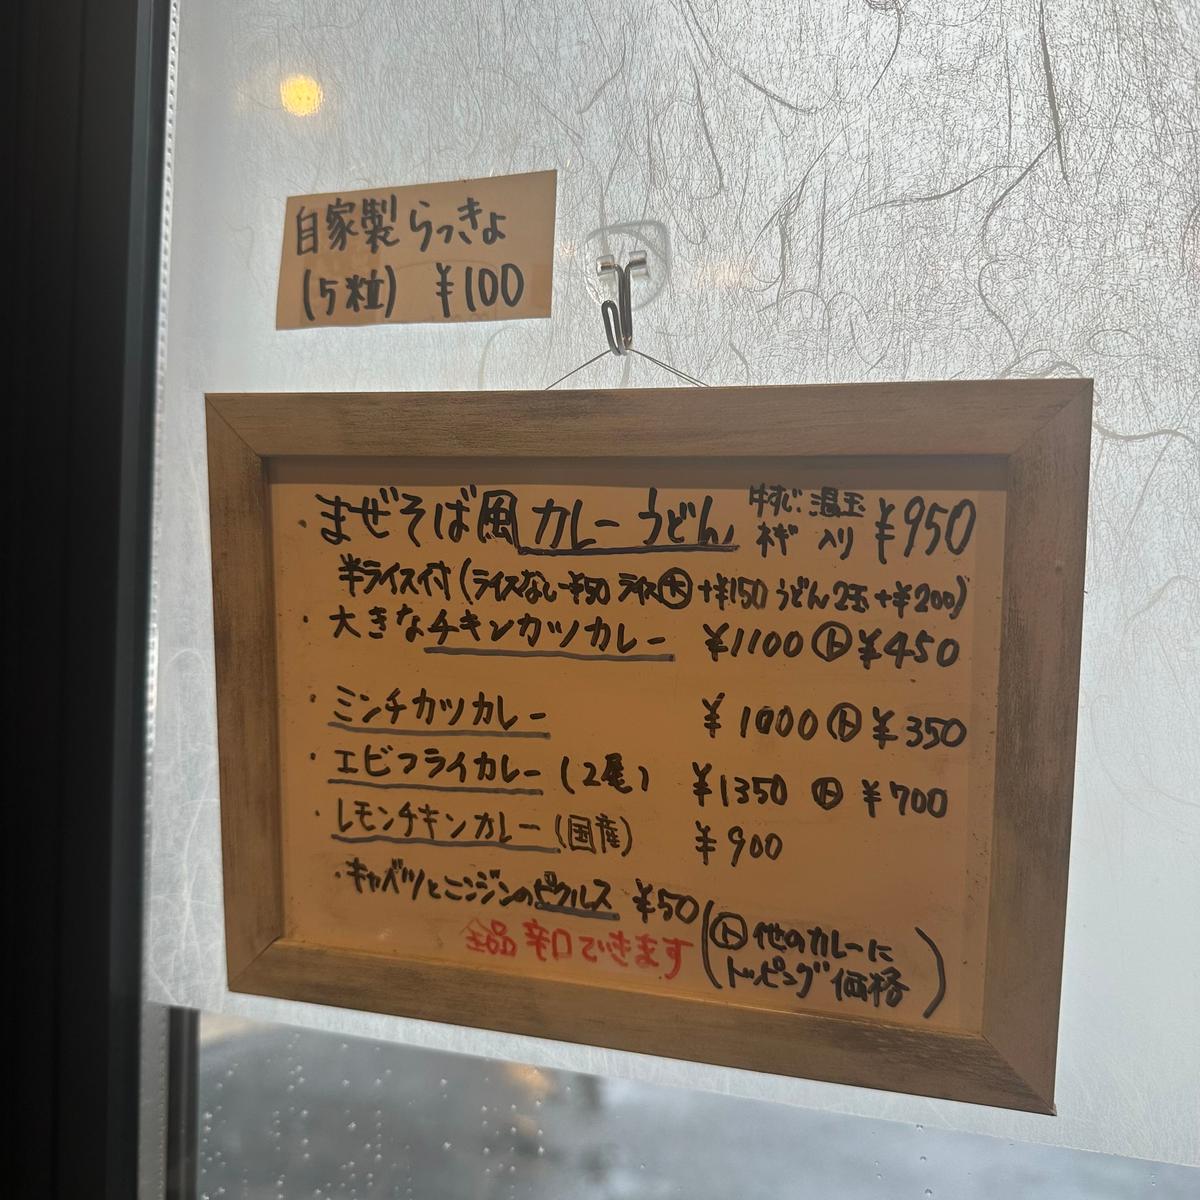 自家製らっきょ
(5粒) ¥100
・まぜそば風カレーうどん 牛すじ・温玉 ネギ 入り ¥950
半ライス付(ライスなし-¥50 ライス大+¥150 うどん2玉+¥200)
・大きなチキンカツカレー ¥1100 ト¥450
・ミンチカツカレー ¥1000 ト¥350
・エビフライカレー(2尾) ¥1350 ト¥700
・レモンチキンカレー(国産) ¥900
・キャベツとニンジンのピクルス ¥50
全品辛口できます
(ト他のカレーに
トッピング価格)